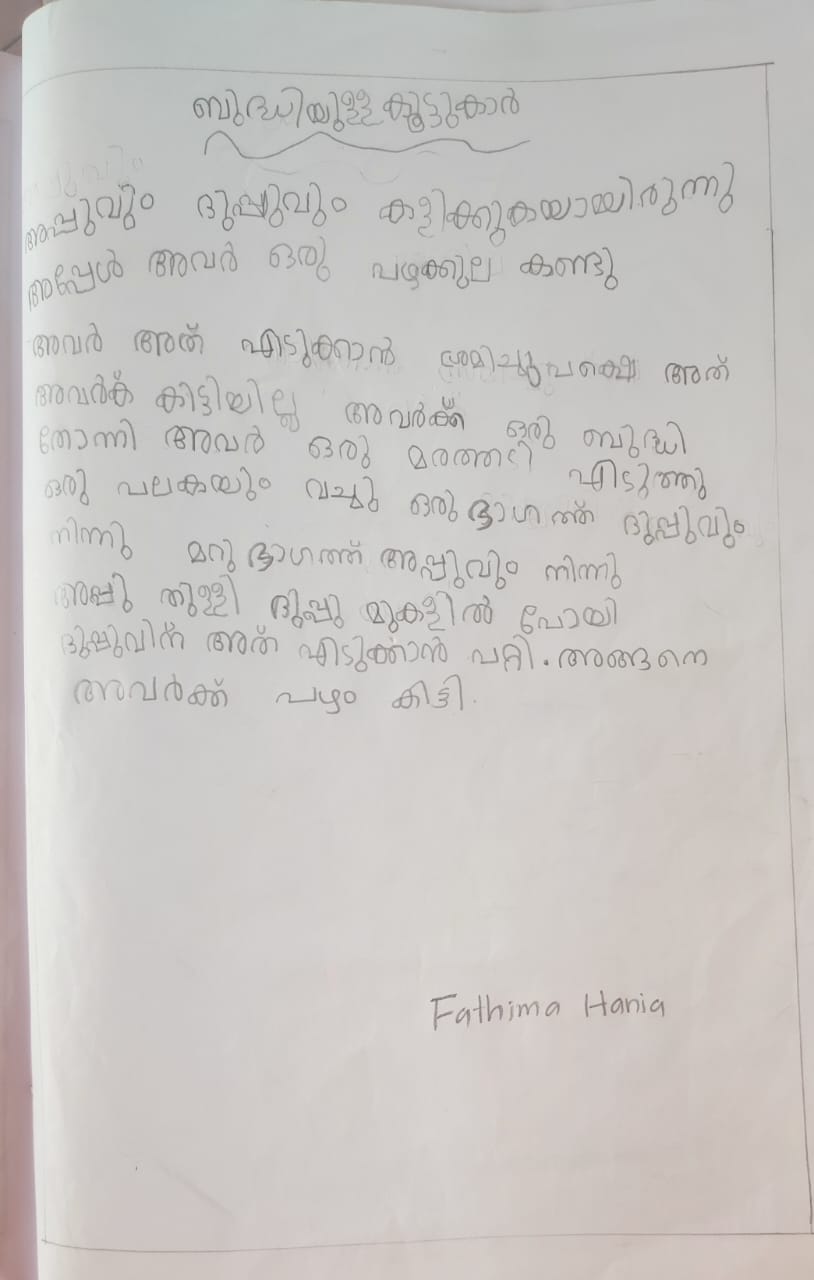 ബുദ്ധിയുള്ള കൂട്ടുകാർ
അപ്പുവും ദുപ്പുവും കളിക്കുകയായിരുന്നു
അപ്പേൾ അവർ ഒരു പഴക്കുല കണ്ടു
അവർ അത് എടുക്കാൻ ശ്രമിച്ചു പക്ഷെ അത്
അവർക് കിട്ടിയില്ല അവർക്ക് ഒരു ബുദ്ധി
തോന്നി അവർ ഒരു മരത്തടി എടുത്തു
ഒരു പലകയും വച്ചു ഒരു ഭാഗത്ത് ദുപ്പുവും
നിന്നു മറു ഭാഗത്ത് അപ്പുവും നിന്നു
അപ്പു തുള്ളി ദുപ്പു മുകളിൽ പോയി
ദുപ്പുവിന് അത് എടുക്കാൻ പറ്റി. അങ്ങനെ
അവർക്ക് പഴം കിട്ടി.
Fathima Hania